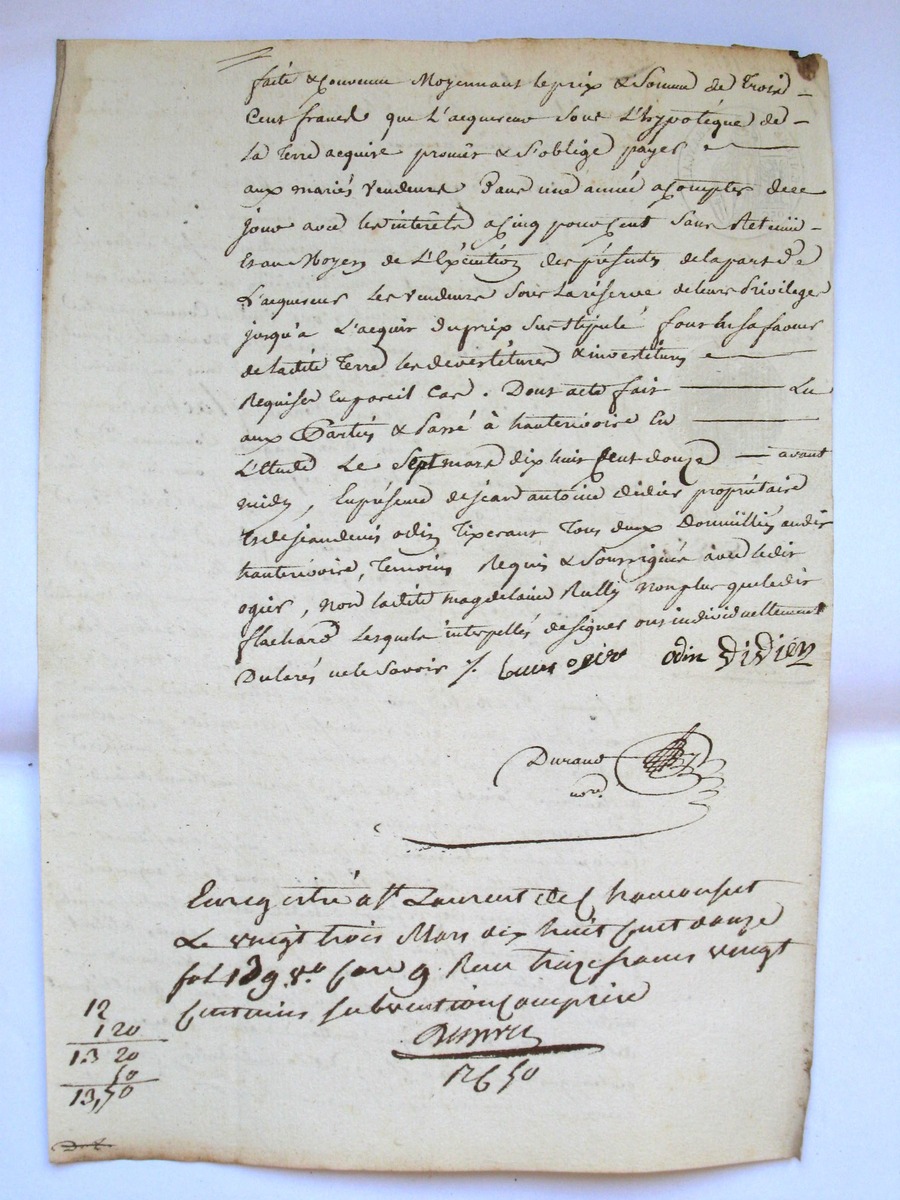 faite & Convenue Moyennant le prix & Somme de Trois
Cent francs que L'acquereur Sous L'hypotéque de
La Terre acquise promêt & S'oblige payer
aux mariés vendeurs Dans une année a Compter de ce
jour avec les interêts a Cinq pour Cent Sans Retenue
Et au Moyen de L'Exécution des présentes de la part de
L'acquereur les vendeurs Sous La réserve de leurs Privileges
jusqu'a L'acquit du prix Sus Stipulé font en sa faveur
de ladite Terre les devestitures & investitures
Requises En pareil Cas. Dont acte fait Lu
aux Parties & Passé à hauterivoire En
L'Etude Le Sept mars dix huit Cent douze avant
midy, En présence de jean antoine didier propriétaire
Et de jean denis odin Tixerant Tous deux Domiciliés audit
hauterivoire, Temoins Requis & Soussignés avec ledit
ogier, non ladite magdelaine Rully non plus que ledit
flachard Lesquels interpellés de signer ont individuellement
Déclarés ne le Savoir ogier odin Didier
Durand
nore.
Enregistré a St. Laurent de Chamousset
Le vingt trois Mars dix huit Cent douze
fol. 139 vo. Case 9 Reçu treize francs vingt
Centimes subvention Comprise
12
1 20
13 20
50
13,50
12650